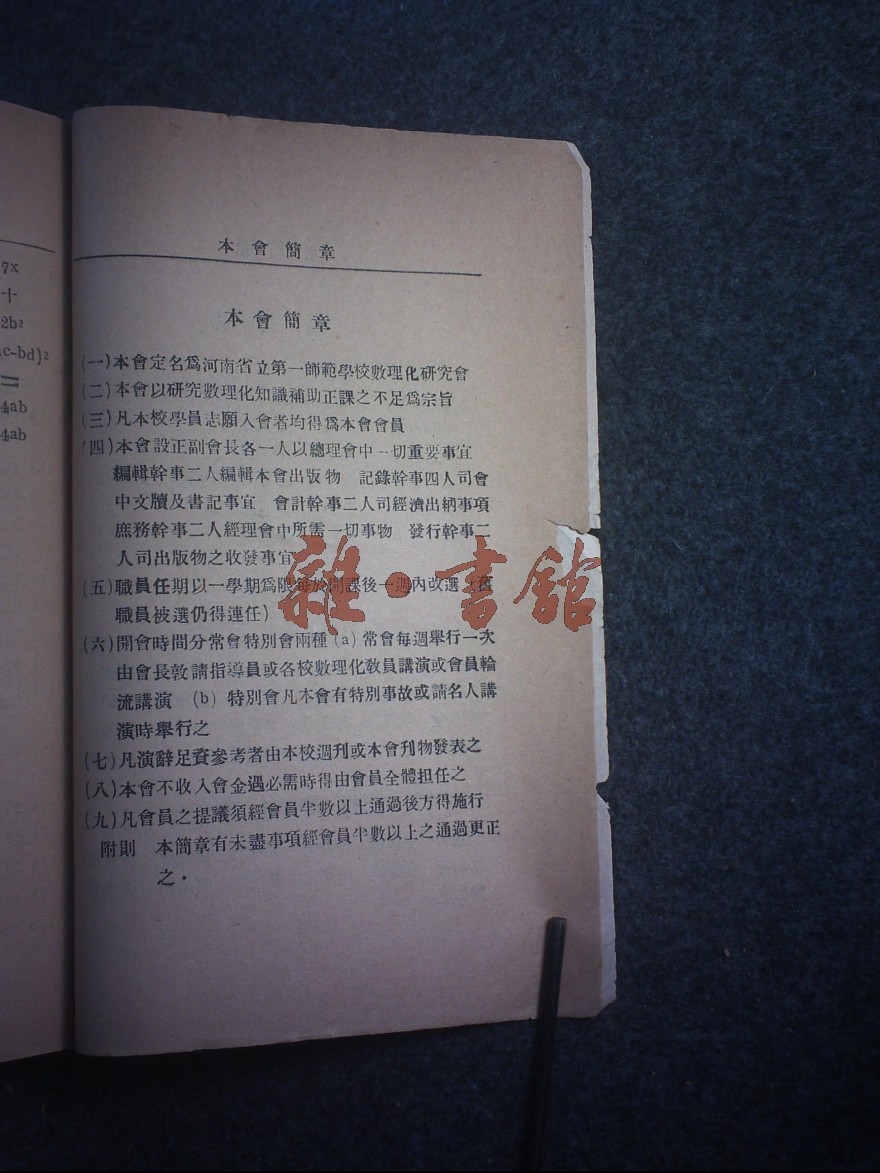 7x
十
2b²
c-bd)²
=
4ab
4ab
本會簡章
本會簡章
(一)本會定名爲河南省立第一師範學校數理化研究會
(二)本會以研究數理化知識補助正課之不足爲宗旨
(三)凡本校學員志願入會者均得爲本會會員
(四)本會設正副會長各一人以總理會中一切重要事宜
編輯幹事二人編輯本會出版物 記錄幹事四人司會
中文牘及書記事宜 會計幹事二人司經濟出納事項
庶務幹事二人經理會中所需一切事物 發行幹事二
人司出版物之收發事宜
(五)職員任期以一學期爲限每於開課後一週內改選(舊
職員被選仍得連任)
(六)開會時間分常會特別會兩種(a)常會每週舉行一次
由會長敦請指導員或各校數理化教員講演或會員輪
流講演 (b) 特別會凡本會有特別事故或請名人講
演時舉行之
(七)凡演辭足資參考者由本校週刊或本會刊物發表之
(八)本會不收入會金遇必需時得由會員全體担任之
(九)凡會員之提議須經會員半數以上通過後方得施行
附則 本簡章有未盡事項經會員半數以上之通過更正
之·
雜·書館